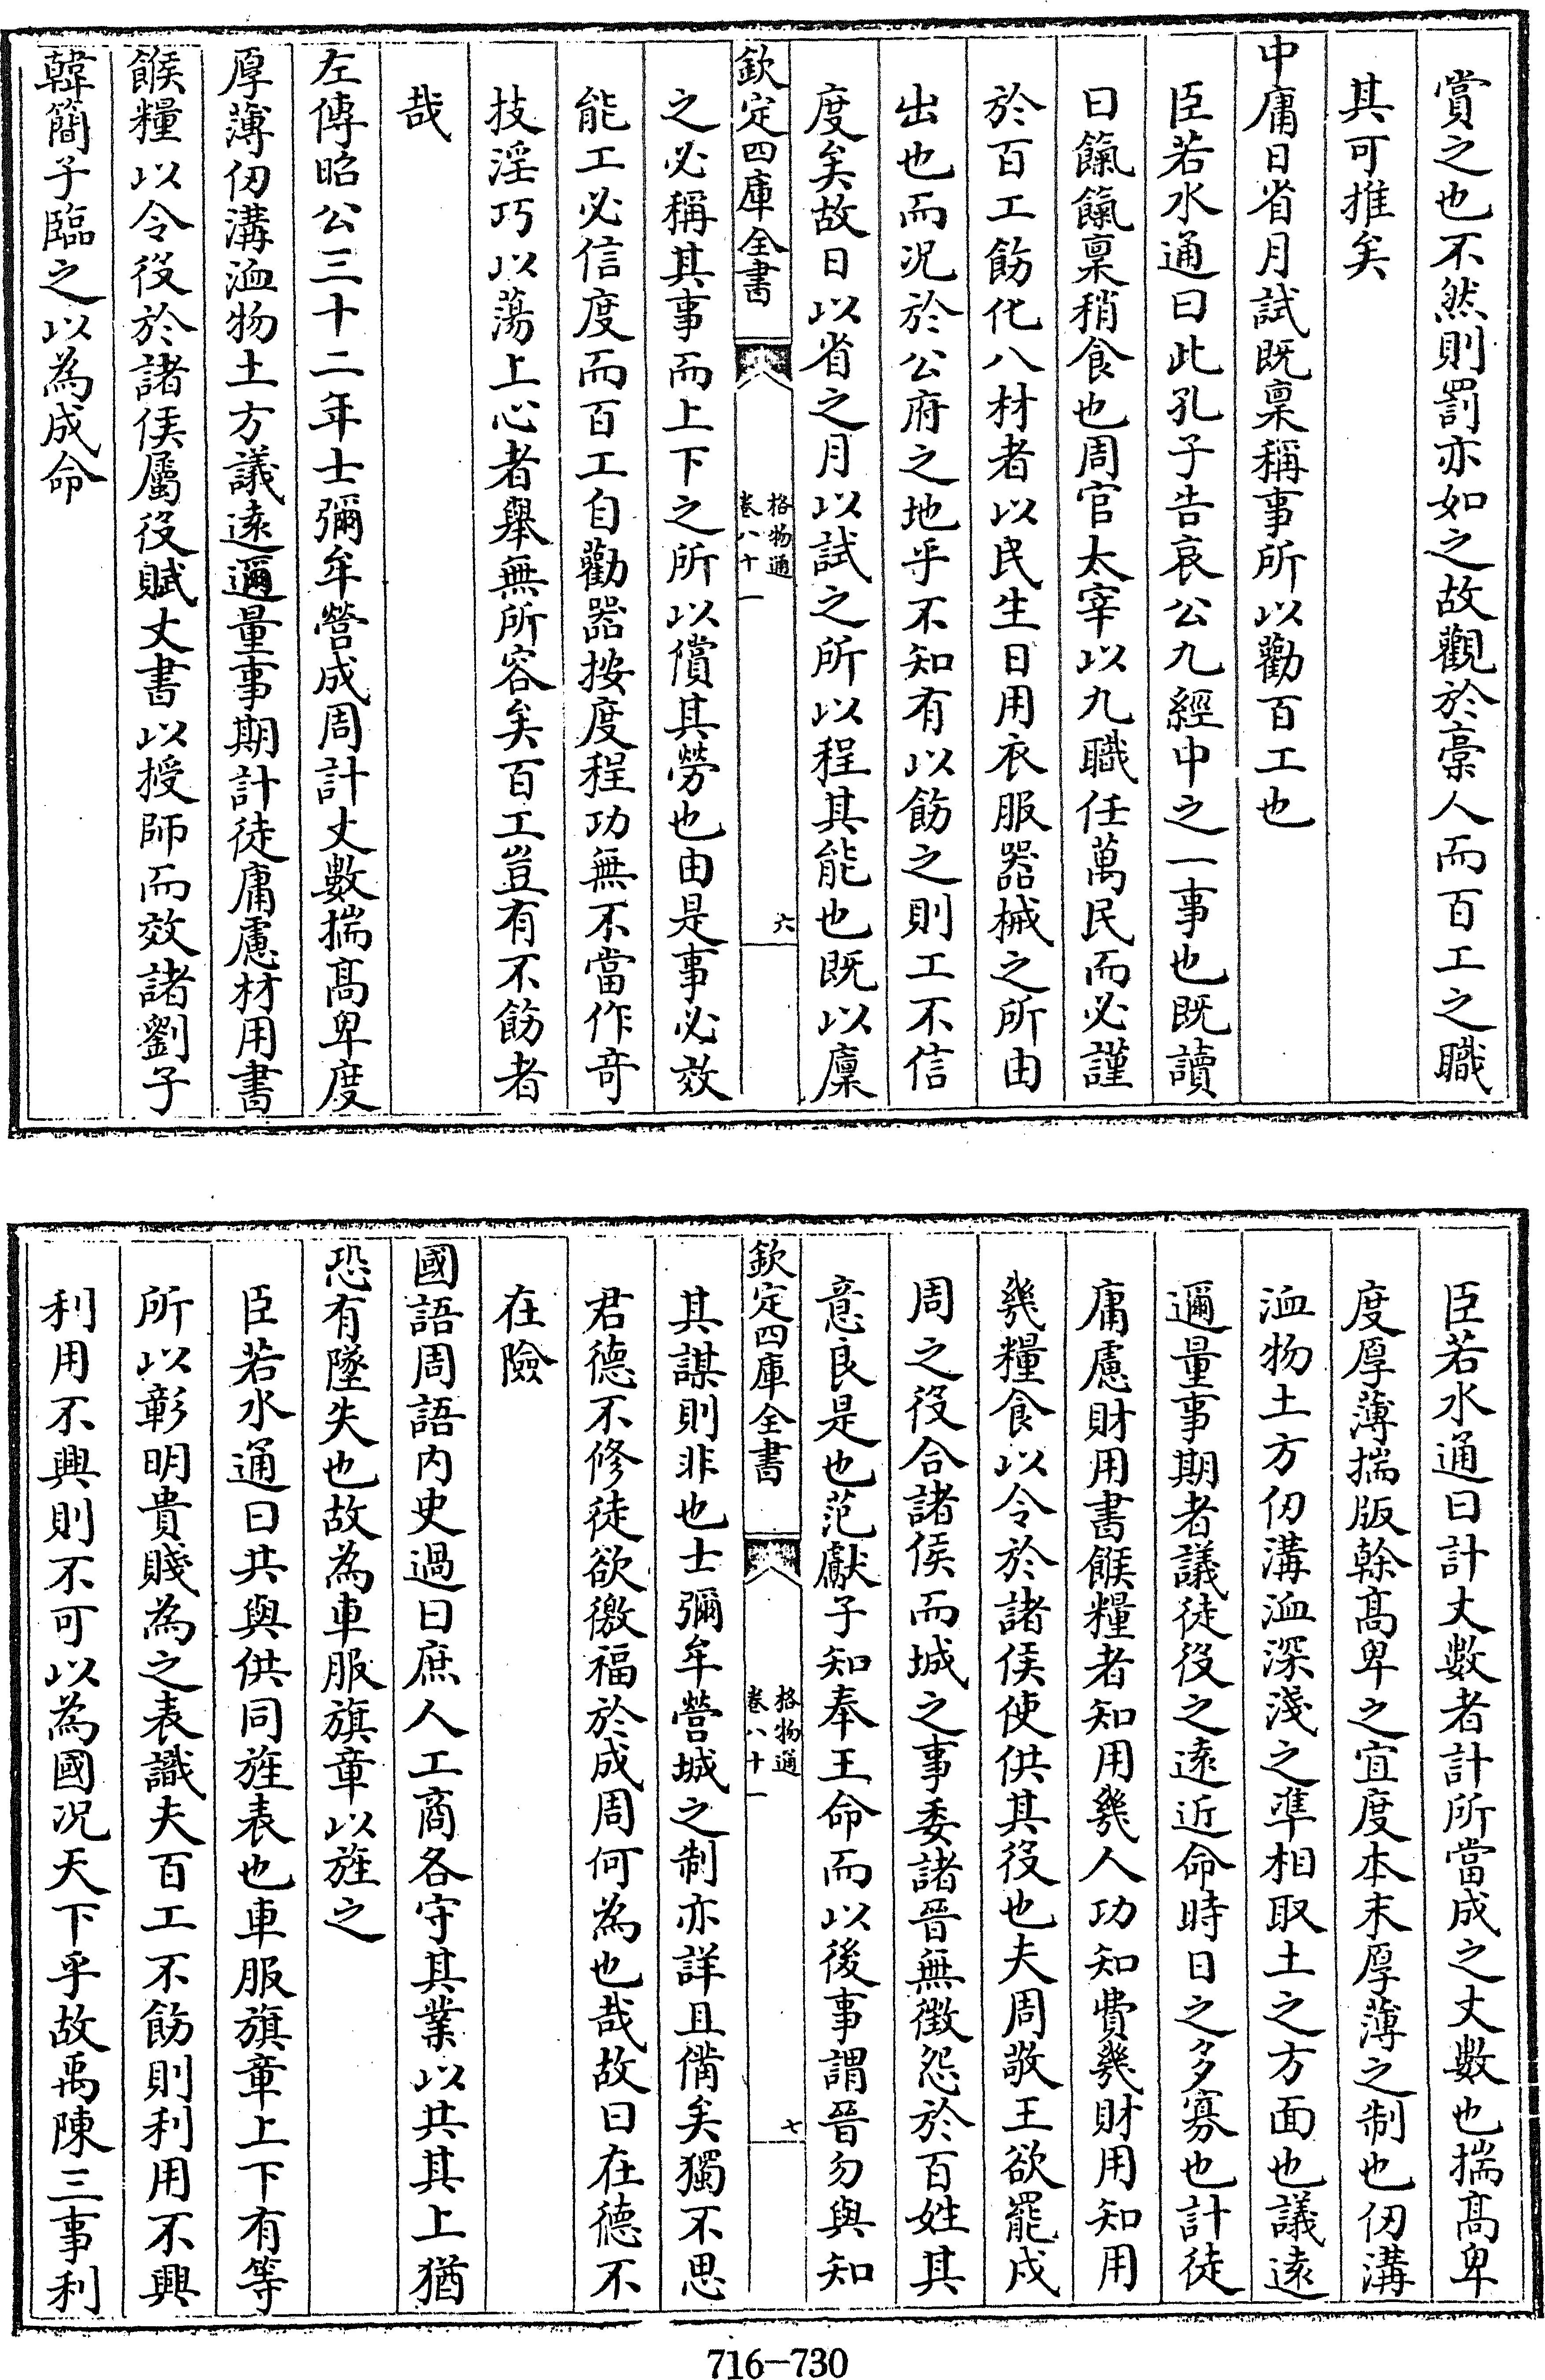 賞之也不然則罰亦如之故觀於稾人而百工之職
其可推矣
中庸日省月試既稟稱事所以勸百工也
臣若水通曰此孔子告哀公九經中之一事也既讀
曰餼餼稟稍食也周官太宰以九職任萬民而必謹
於百工飭化八材者以民生日用衣服器械之所由
出也而況於公府之地乎不知有以飭之則工不信
度矣故日以省之月以試之所以程其能也既以廩
欽定四庫全書
格物通
卷八十一
六
之必稱其事而上下之所以償其勞也由是事必效
能工必信度而百工自勸器按度程功無不當作奇
技淫巧以蕩上心者舉無所容矣百工豈有不飭者
哉
左傳昭公三十二年士彌牟營成周計丈數揣髙卑度
厚薄仞溝洫物土方議逺邇量事期計徒庸慮材用書
餱糧以令役於諸侯屬役賦丈書以授師而效諸劉子
韓簡子臨之以為成命
臣若水通曰計丈數者計所當成之丈數也揣髙卑
度厚薄揣版榦髙卑之宜度本末厚薄之制也仞溝
洫物土方仞溝洫深淺之準相取土之方面也議逺
邇量事期者議徒役之逺近命時日之多寡也計徒
庸慮財用書餱糧者知用幾人功知費幾財用知用
幾糧食以令於諸侯使供其役也夫周敬王欲罷戍
周之役合諸侯而城之事委諸晉無徴怨於百姓其
意良是也范獻子知奉王命而以後事謂晉勿與知
欽定四庫全書
格物通
卷八十一
七
其謀則非也士彌牟營城之制亦詳且備矣獨不思
君德不修徒欲徼福於成周何為也哉故曰在德不
在險
國語周語内史過曰庶人工商各守其業以共其上猶
恐有墜失也故為車服旗章以旌之
臣若水通曰共與供同旌表也車服旗章上下有等
所以彰明貴賤為之表識夫百工不飭則利用不興
利用不興則不可以為國况天下乎故禹陳三事利
716-730